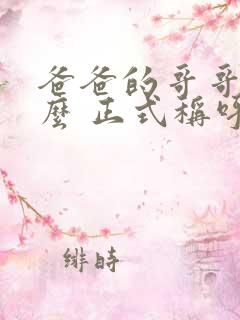 爸爸的哥哥
麼 正式稱呼
緋時